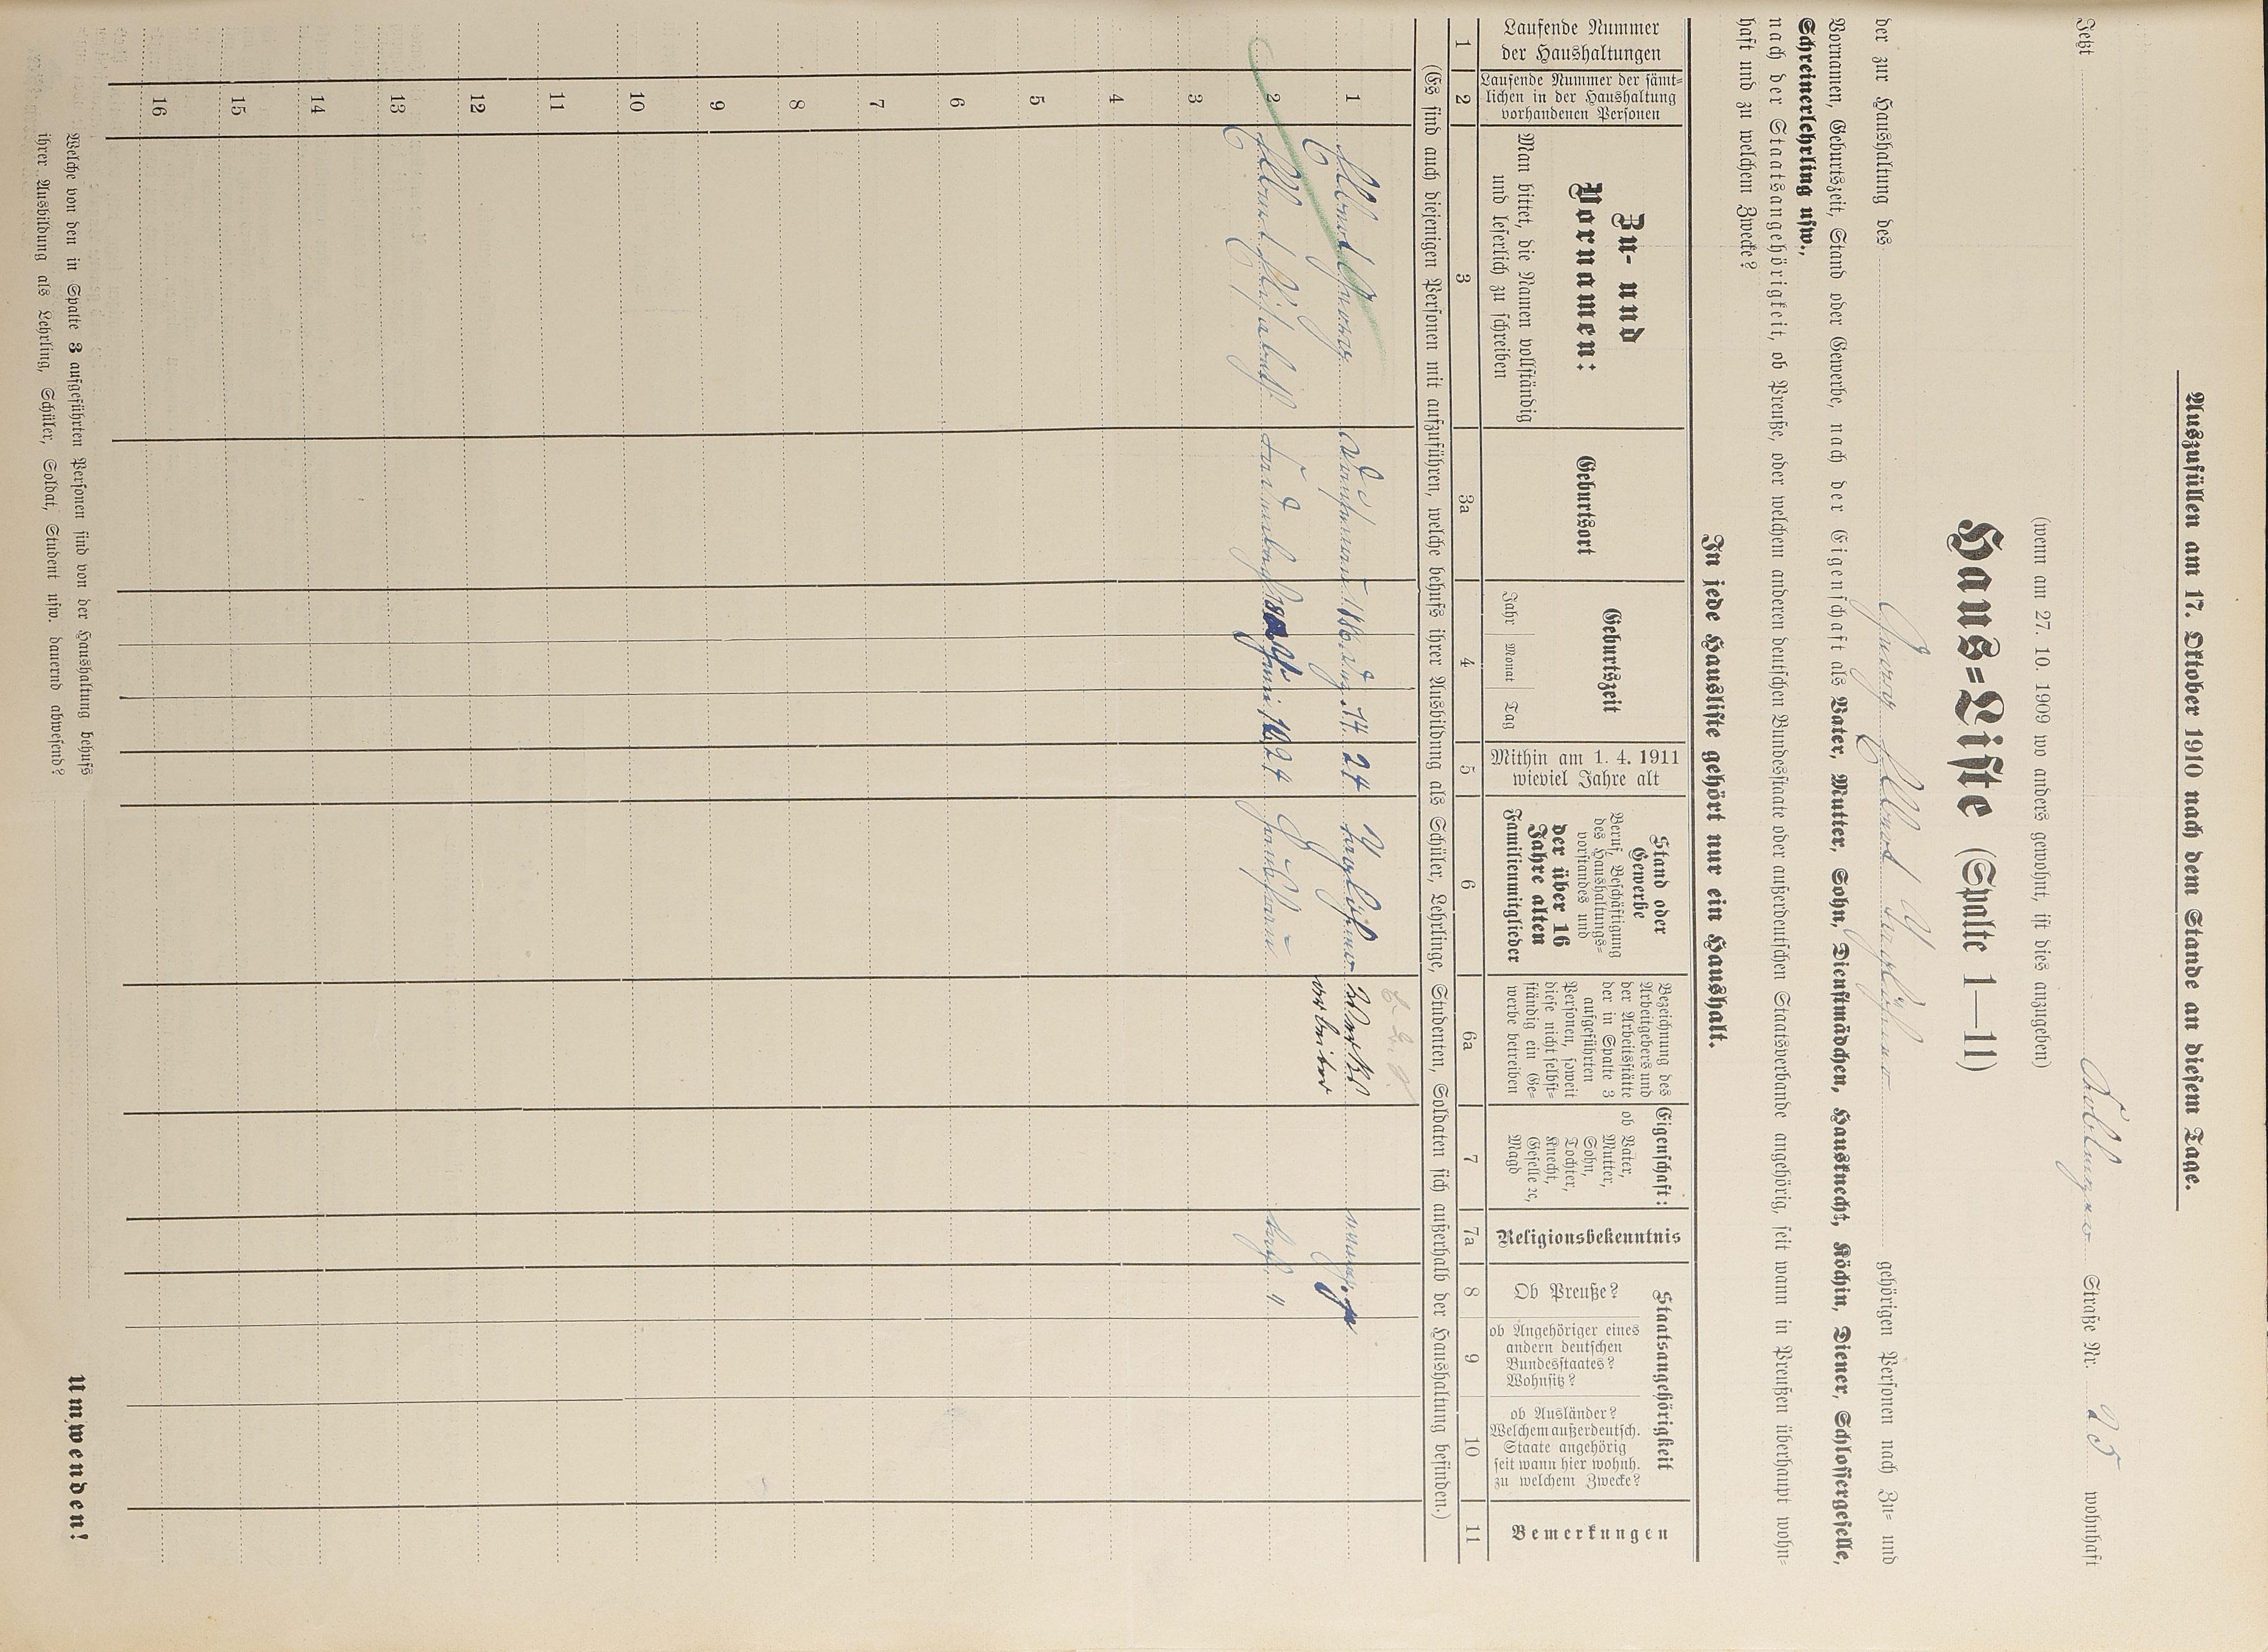 Auszufüllen am 17. Oktober 1910 nach dem Stande an diesem Tage.
Jetzt Koblenzer Straße Nr. 25 wohnhaft
(wenn am 27. 10. 1909 wo anders gewohnt, ist dies anzugeben)
Haus=Liste (Spalte 1—11)
der zur Haushaltung des Georg Albert Taglöhner gehörigen Personen nach Zu= und
Vornamen, Geburtszeit, Stand oder Gewerbe, nach der Eigenschaft als Vater, Mutter, Sohn, Dienstmädchen, Hausknecht, Köchin, Diener, Schlossergeselle,
Schreinerlehrling usw.,
nach der Staatsangehörigkeit, ob Preuße, oder welchem anderen deutschen Bundesstaate oder außerdeutschen Staatsverbande angehörig, seit wann in Preußen überhaupt wohn=
haft und zu welchem Zwecke?
In jede Hausliste gehört nur ein Haushalt.
Laufende Nummer
der Haushaltungen
Laufende Nummer der sämt=
lichen in der Haushaltung
vorhandenen Personen
Zu- und
Vornamen:
Man bittet, die Namen vollständig
und leserlich zu schreiben
Geburtsort
Geburtszeit
Jahr Monat Tag
Mithin am 1. 4. 1911
wieviel Jahre alt
Stand oder
Gewerbe
Beruf, Beschäftigung
des Haushaltungs=
vorstandes und
der über 16
Jahre alten
Familienmitglieder
Bezeichnung des
Arbeitgebers und
der Arbeitsstätte
der in Spalte 3
aufgeführten
Personen, soweit
diese nicht selbst=
ständig ein Ge=
werbe betreiben
Eigenschaft:
ob Vater,
Mutter,
Sohn,
Tochter,
Knecht,
Geselle ꝛc,
Magd
Religionsbekenntnis
Staatsangehörigkeit
Ob Preuße?
ob Angehöriger eines
andern deutschen
Bundesstaates?
Wohnsitz?
ob Ausländer?
Welchem außerdeutsch.
Staate angehörig
seit wann hier wohnh.
zu welchem Zwecke?
Bemerkungen
1 2 3 3a 4 5 6 6a 7 7a 8 9 10 11
(Es sind auch diejenigen Personen mit aufzuführen, welche behufs ihrer Ausbildung als Schüler, Lehrlinge, Studenten, Soldaten sich außerhalb der Haushaltung befinden.)
1 Albert Georg 14 24 Taglöhner
arbeiter
2 Albert Elisabeth Juni 16 24 Hausfrau kath. "
3
4
5
6
7
8
9
10
11
12
13
14
15
16
Welche von den in Spalte 3 aufgeführten Personen sind von der Haushaltung behufs
ihrer Ausbildung als Lehrling, Schüler, Soldat, Student usw. dauernd abwesend?
Umwenden!